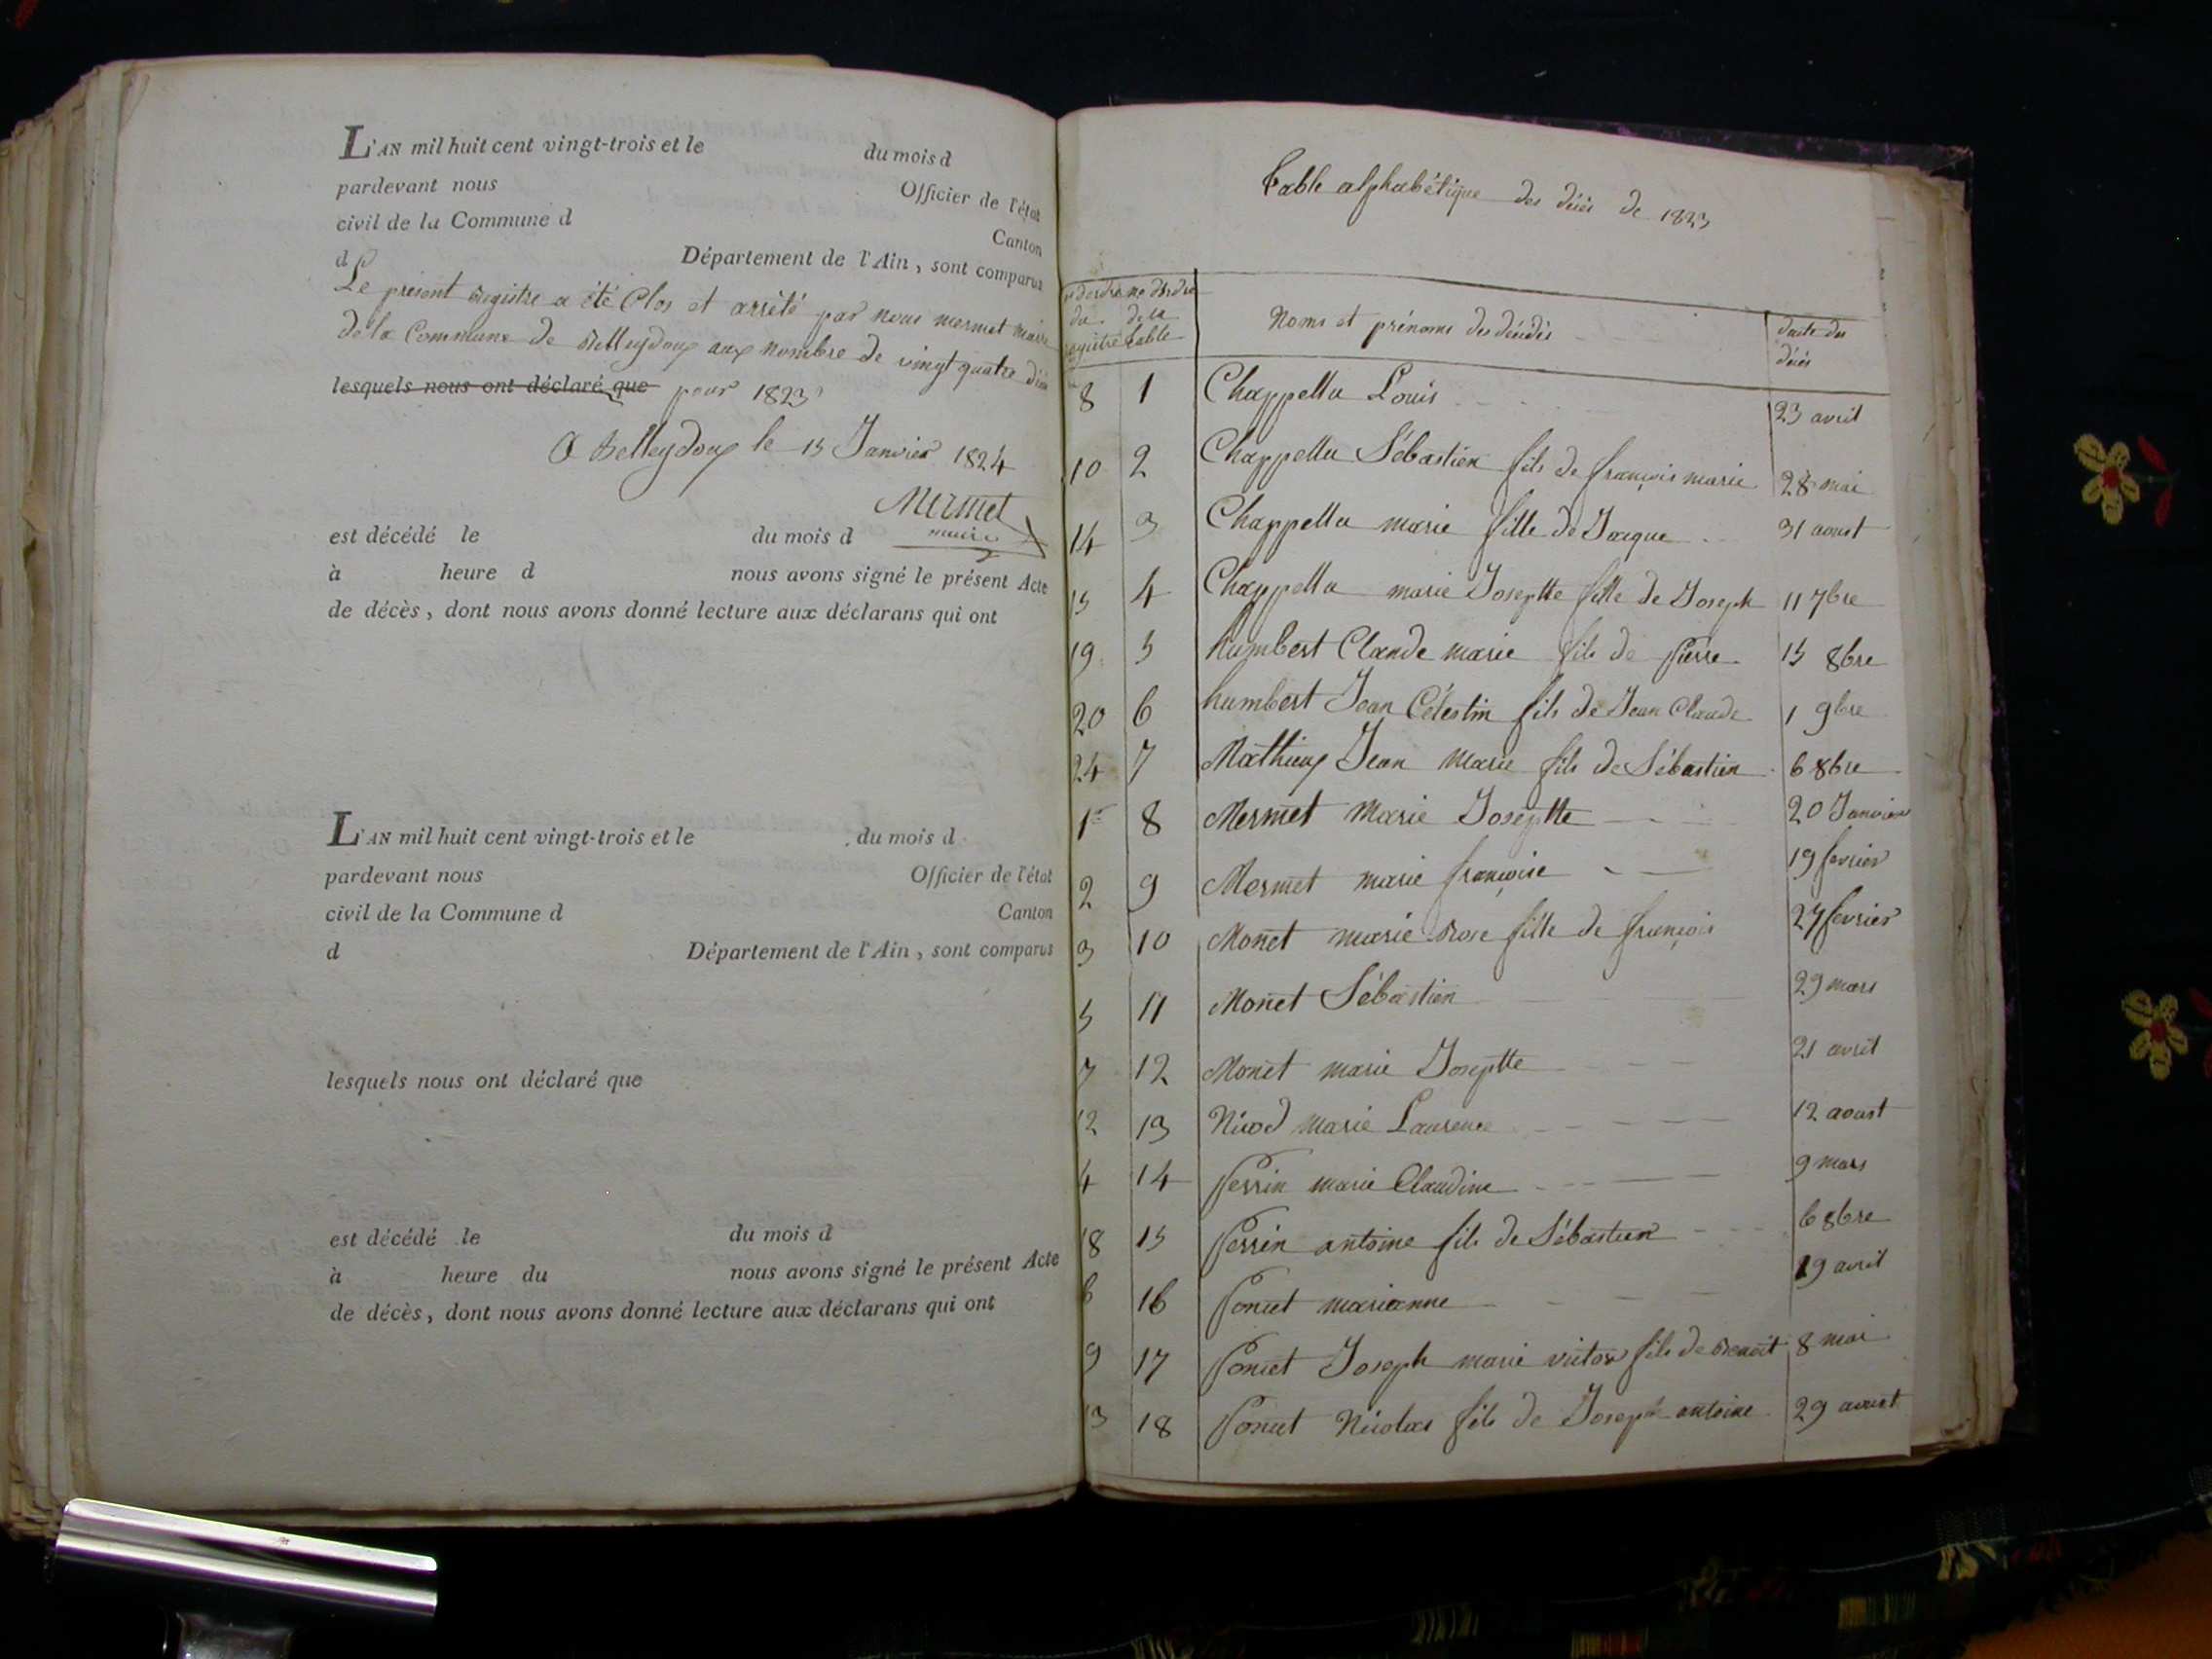 L'AN mil huit cent vingt-trois et le du mois d
pardevant nous Officier de l'état
civil de la Commune d Canton
d Département de l'Ain, sont comparus
Le present registre a été Clos et arrêté par nous mermet maire
de la Commune de Belleydoux aux nombre de vingt quatre
lesquels nous ont déclaré que pour 1823
A Belleydoux le 15 Janvier 1824
Mermet
maire
est décédé le du mois d
à heure d nous avons signé le présent Acte
de décès, dont nous avons donné lecture aux déclarans qui ont
L'AN mil huit cent vingt-trois et le du mois d
pardevant nous Officier de l'état
civil de la Commune d Canton
d Département de l'Ain, sont comparus
lesquels nous ont déclaré que
est décédé le du mois d
à heure du nous avons signé le présent Acte
de décès, dont nous avons donné lecture aux déclarans qui ont
Table alphabétique des décès de 1823
n° dordre du registre n° dordre de la table Noms et prénoms des décédés date des décés
8 1 Chappellu Louis 23 avril
10 2 Chappellu Sébastien fils de françois marie 28 mai
14 3 Chappellu marie fille de Jacque 31 aoust
15 4 Chappellu marie Josephte fille de Joseph 11 7bre
19 5 humbert Claude marie fils de pierre 15 8bre
20 6 humbert Jean Célestin fils de Jean Claude 1 9bre
24 7 Mathieux Jean Marie fils de Sébastien 6 8bre
1er 8 Mermet Marie Josephte 20 Janvier
2 9 Mermet marie françoise 19 fevrier
3 10 Monet marie Rose fille de françois 27 fevrier
5 11 Monet Sébastien 29 mars
7 12 Monet marie Josephte 21 avril
12 13 Nicod marie Laurence 12 aoust
4 14 Perrin marie Claudine 9 mars
18 15 Perrin antoine fils de Sébastien 6 8bre
6 16 Poncet marianne 19 avril
9 17 Poncet Joseph marie victor fils de Benoit 8 mai
13 18 Poncet Nicolas fils de Joseph antoine 29 aoust